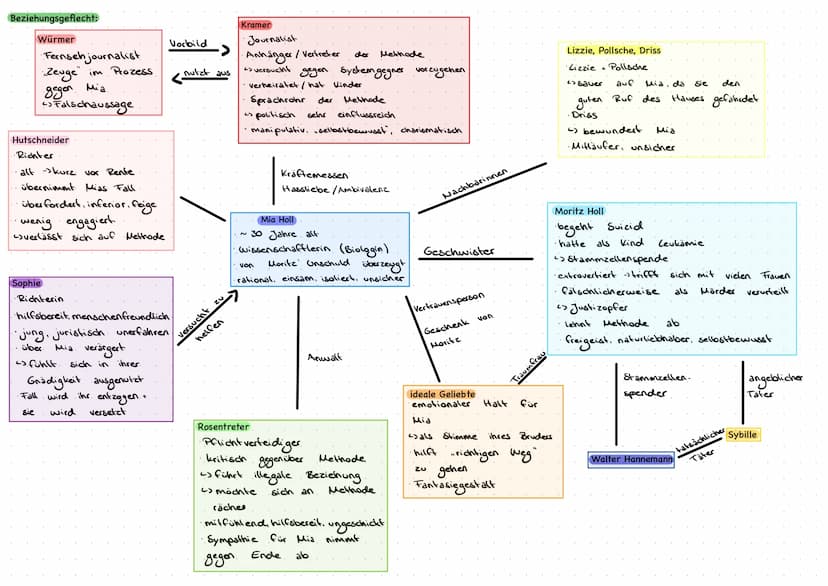 Beziehungsgeflecht:
Würmer
· Fernsehjournalist
· "Zeuge" im Prozess
gegen Mia
↳ Falschaussage
Vorbild
nutzt aus
Kramer
· Journalist
· Anhänger/Vertreter der Methode
↳ versucht gegen Systemgegner vorzugehen
· verheiratet/hat Kinder
· Sprachrohr der Methode
↳ politisch sehr einflussreich
· manipulativ, "selbstbewusst", charismatisch
Lizzie, Pollsche, Driss
· Lizzie + Pollsche
↳ sauer auf Mia, da sie den
guten Ruf des Hauses gefährdet
· Driss
↳ bewundert Mia
· Mitläufer, unsicher
Hutschneider
· Richter
· alt → kurz vor Rente
· übernimmt Mias Fall
· überfordert, inferior, feige
· wenig engagiert
↳ verlässt sich auf Methode
Kräftemessen
Hassliebe/Ambivalenz
Nachbarinnen
Mia Holl
· ~ 30 Jahre alt
· Wissenschaftlerin (Biologin)
· von Moritz' Unschuld überzeugt
rational, einsam, isoliert, unsicher
Geschwister
Moritz Holl
· begeht Suizid
· hatte als Kind Leukämie
↳ Stammzellenspende
· extrovertiert → trifft sich mit vielen Frauen
· fälschlicherweise als Mörder verurteilt
↳ Justizopfer
· lehnt Methode ab
· freigeist, naturliebhaber, selbstbewusst
Sophie
· Richterin
· hilfsbereit, menschenfreundlich
· jung, juristisch unerfahren
· über Mia verärgert
↳ fühlt sich in ihrer
Gnädigkeit ausgenutzt
· Fall wird ihr entzogen +
sie wird versetzt
versucht zu
helfen
Anwalt
Vertrauensperson
Geschenk von
Moritz
Traumfrau
Stammzellen-
spender
angeblicher
Täter
ideale Geliebte
· emotionaler Halt für
Mia
↳ als Stimme ihres Bruders
· hilft "richtigen Weg"
zu gehen
· Fantasiegestalt
Rosentreter
· Pflichtverteidiger
· kritisch gegenüber Methode
↳ führt illegale Beziehung
↳ möchte sich an Methode
rächen
· mitfühlend, hilfsbereit, ungeschickt
· Sympathie für Mia nimmt
gegen Ende ab
Walter Hannemann
tatsächlicher
Täter
Sybille